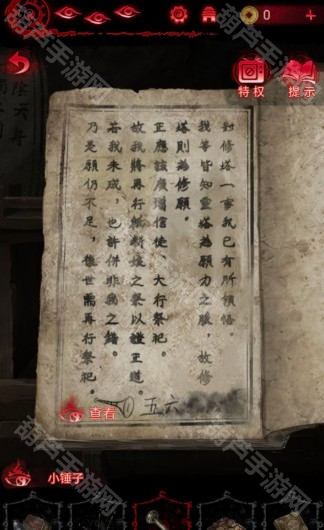 0
特权
提示
對修塔一事我已有所領悟。
我等皆知靈塔為願力之驗，故修
塔則為修願。
正應該廣增信徒、大行祭祀。
故我將再行紙新娘之祭以證王道。
若我未成，也許併非我之錯。
乃是願仍不足，後世需再行祭祀。
五六
查看
小锤子
葫芦手游网